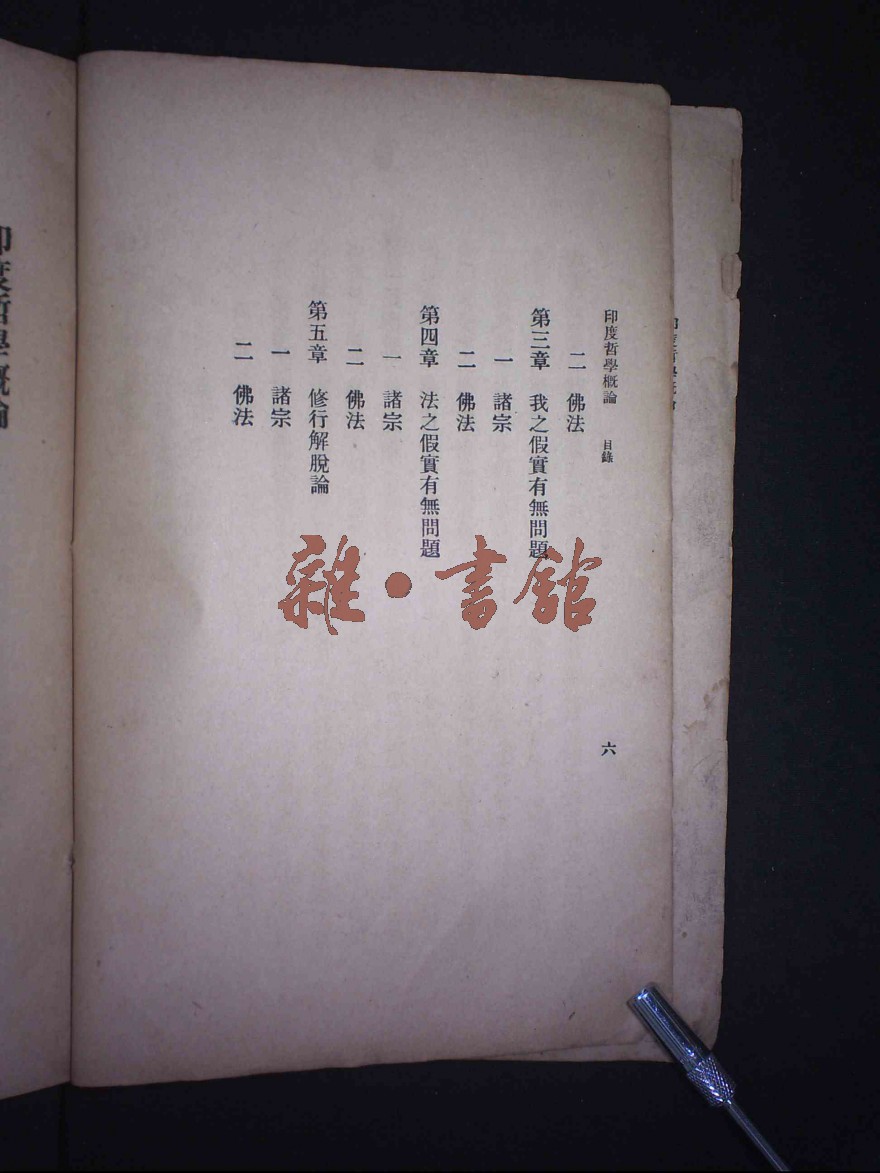 印度哲學概論　目錄
六
二　佛法
第三章　我之假實有無問題
一　諸宗
二　佛法
第四章　法之假實有無問題
一　諸宗
二　佛法
第五章　修行解脫論
一　諸宗
二　佛法
印度哲學概論
雜·書館